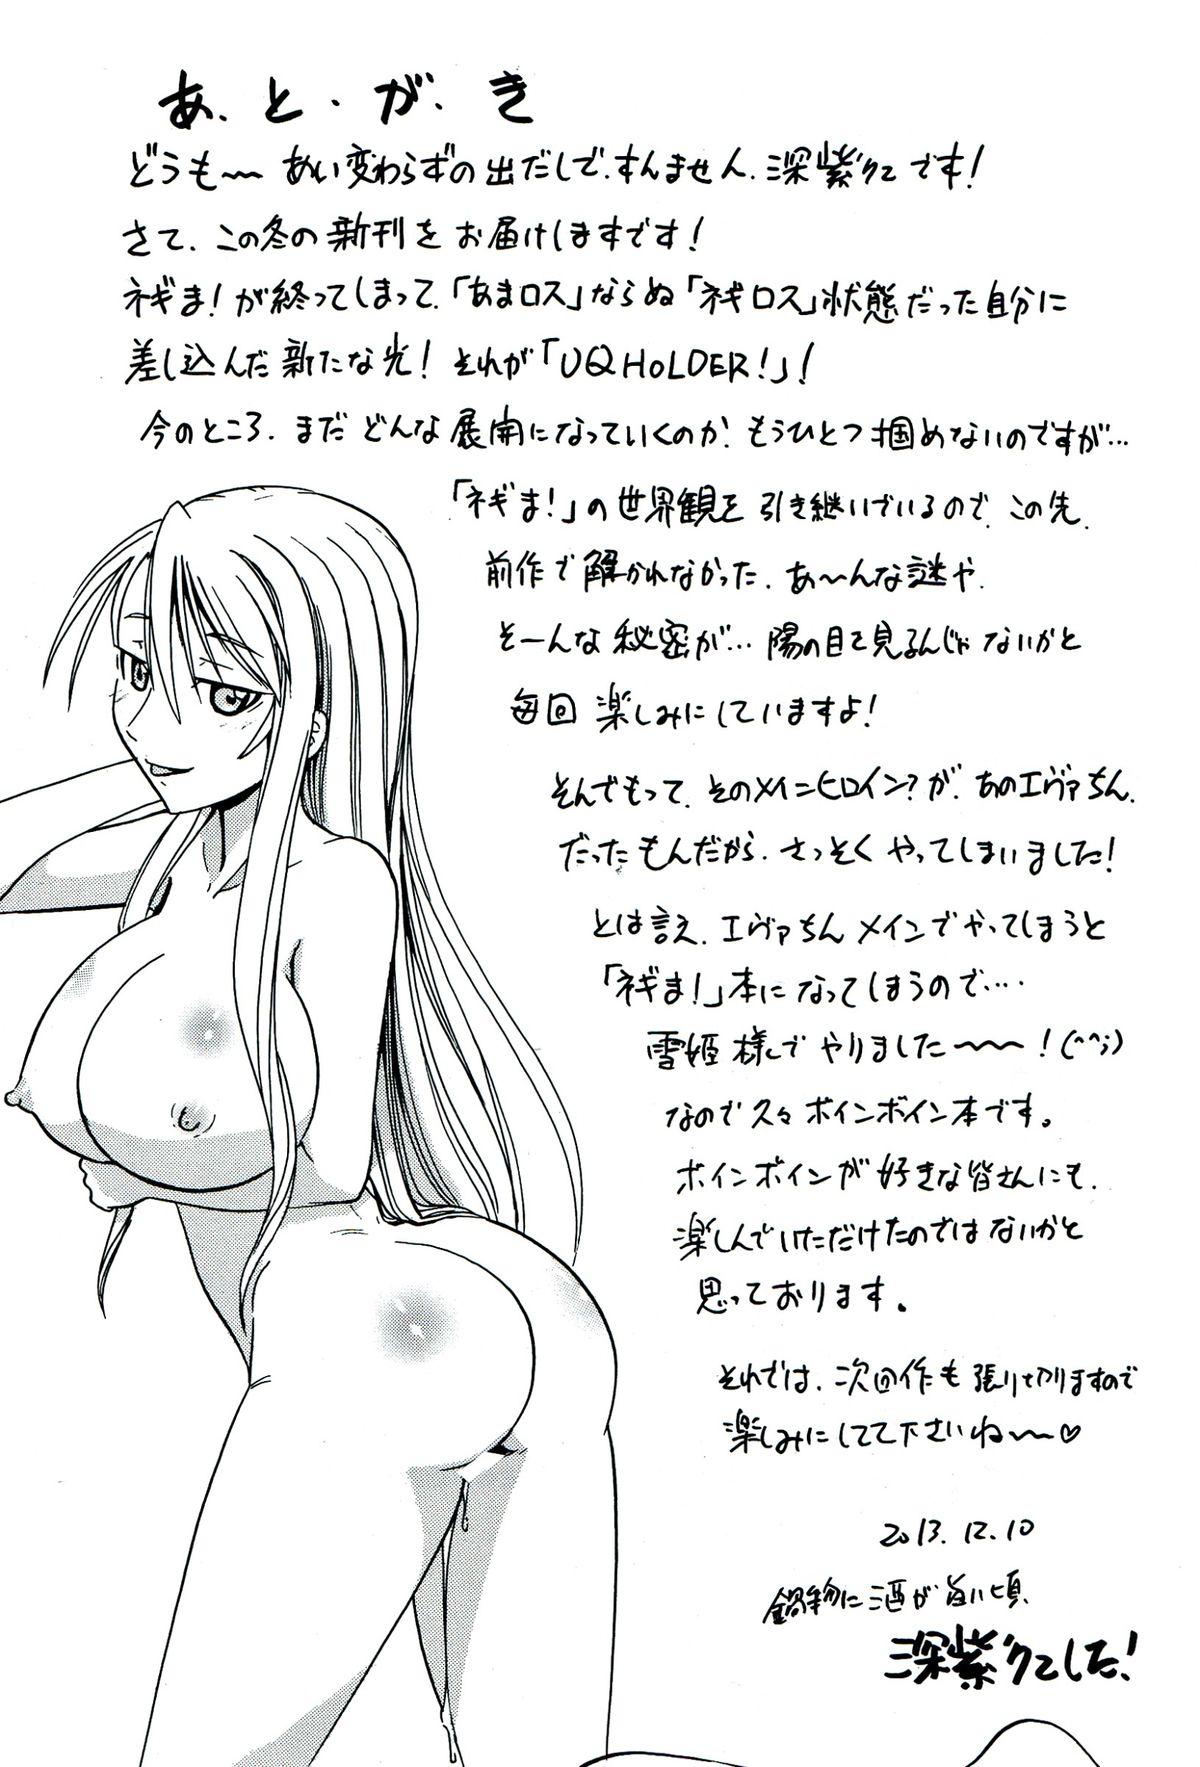 あ・と・が・き
どうも～あい変わらずの出だしで、すんません、深紫クニです！
さて、この冬の新刊をお届けしますです！
ネギま！が終ってしまって、「あまロス」ならぬ「ネギロス」状態だった自分に
差し込んだ新たな光！それが「UQ HOLDER！」！
今のところ、まだどんな展開になっていくのか、もうひとつ掴めないのですが…
「ネギま！」の世界観を引き継いでいるので、この先、
前作で解かれなかった、あ～んな謎や、
そーんな秘密が…陽の目を見るんじゃないかと
毎回楽しみにしていますよ！
そんでもって、そのメインヒロイン？が、あのエヴァちん、
だったもんだから、さっそくやってしまいました！
とは言え、エヴァちんメインでやってしまうと
「ネギま！」本になってしまうので…‥
雪姫様しでやりました～～！(^^;)
なので久々ボインボイン本です。
ボインボインが好きな皆さんにも、
楽しんでいただけたのではないかと
思っております。
それでは、次回作も張り切りますので
楽しみにしてて下さいね～♡
2013.12.10
鍋物に酒が旨い頃、
深紫クニでした！